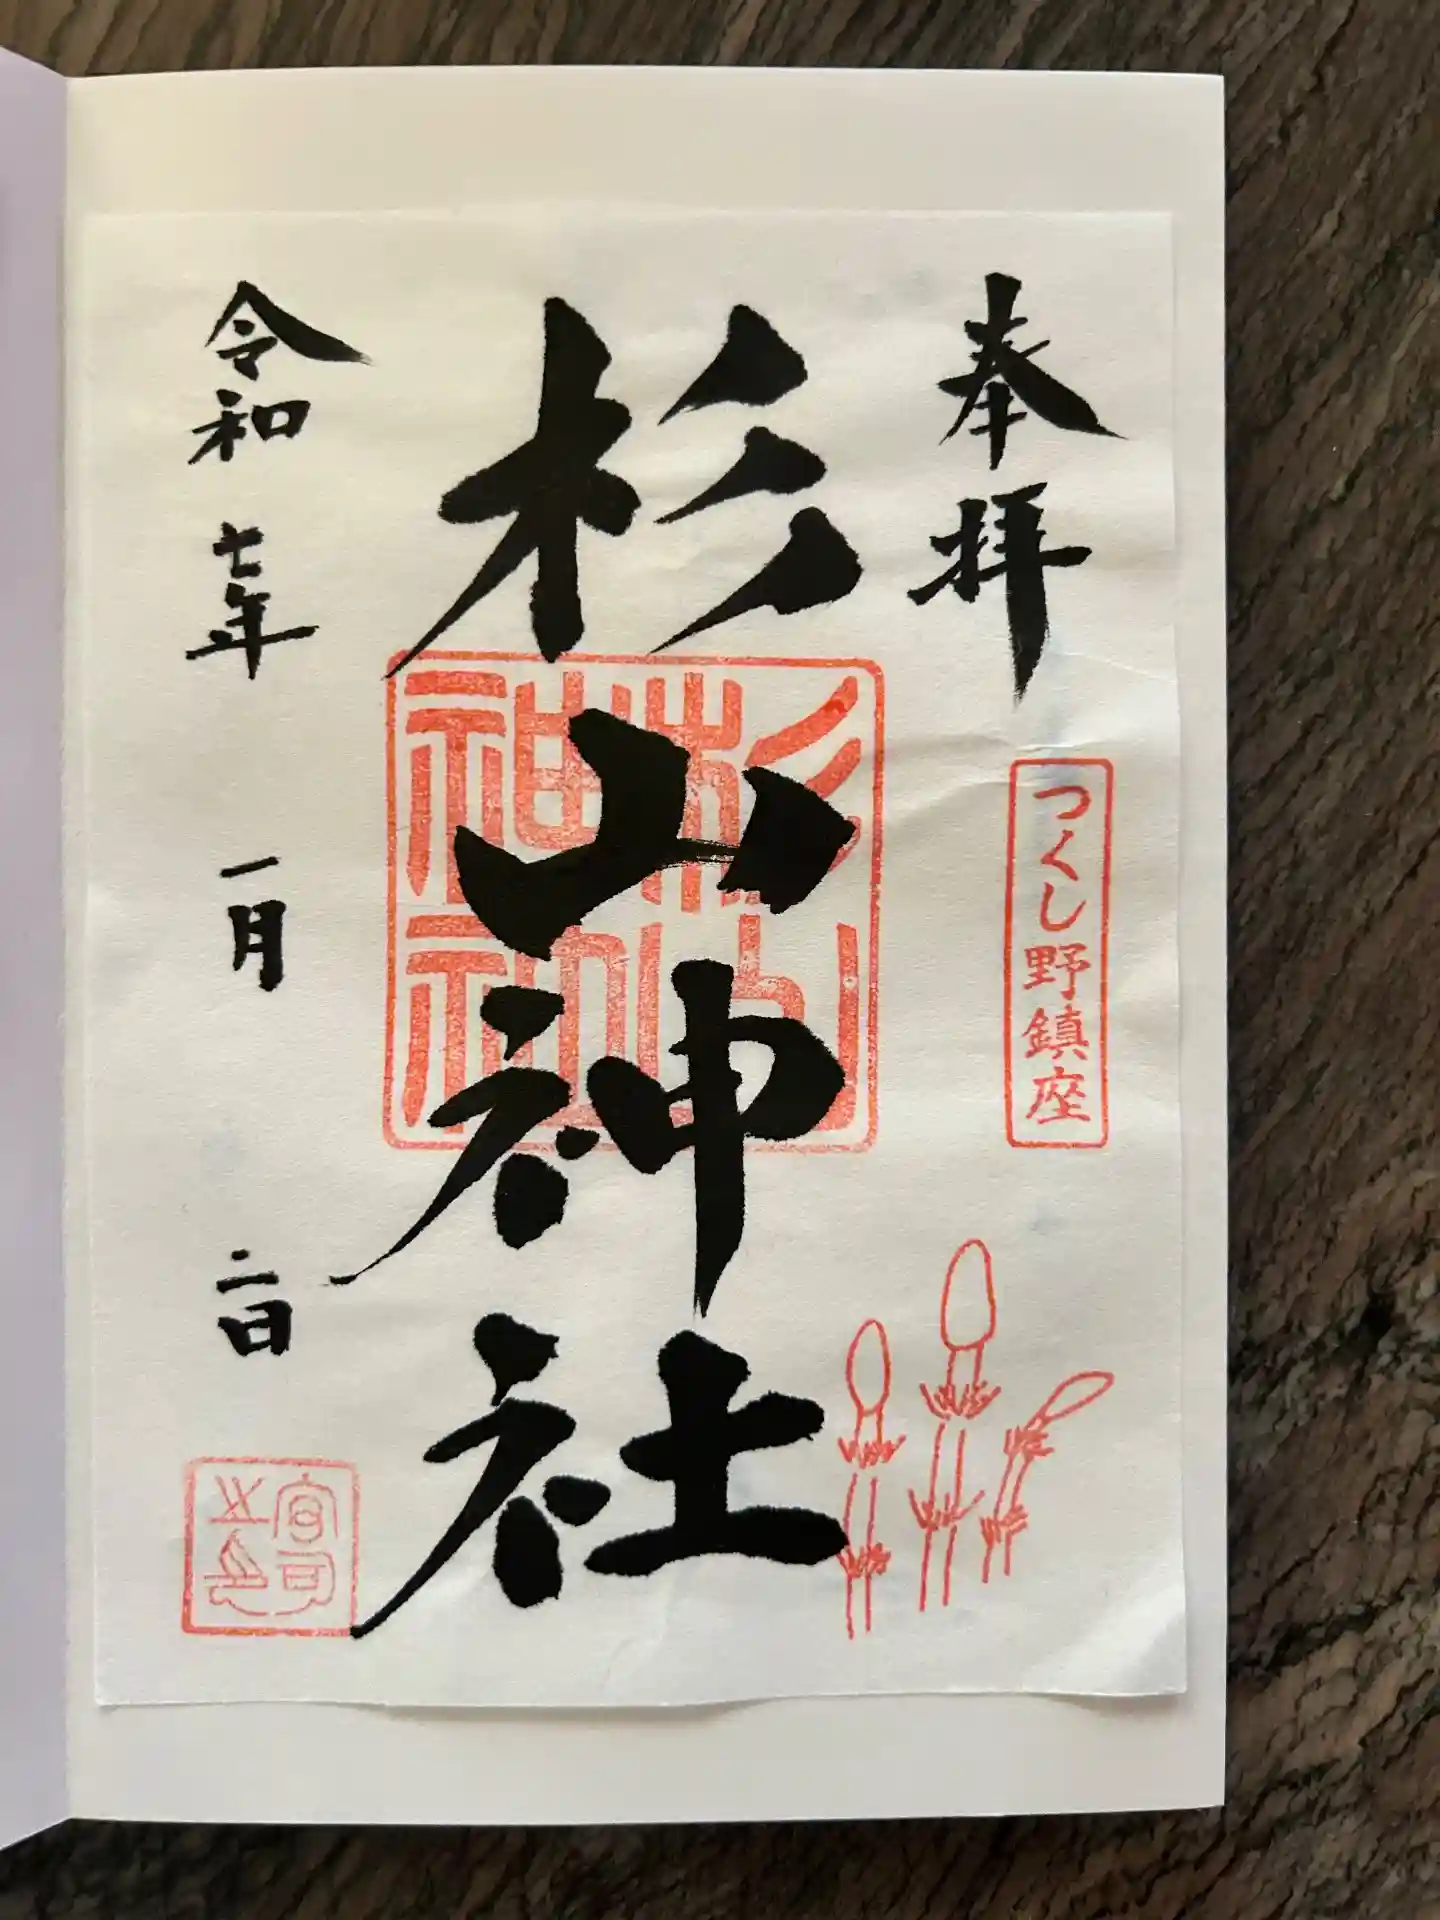 奉拝
つくし野鎮座
杉山神社
杉山神社
令和七年 一月 二日